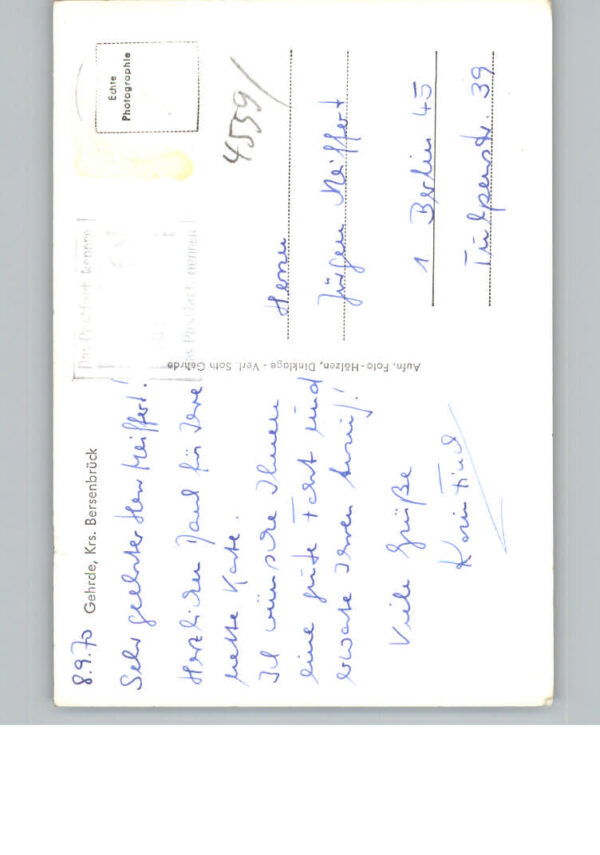 8.9.70 Gehrde, Krs. Bersenbrück
Sehr geehrter Herr Meiffert!
Herzlichen Dank für Ihre
nette Karte.
Ich wünsche Ihnen
eine gute Fahrt und
erwarte Ihren Anruf!
Viele Grüße
Karin
Aufn. Foto-Hölzen, Dinklage - Verl. Soth Gehrde
Echte
Photographie
4559/
Herrn
Jürgen Meiffert
1 Berlin 45
Tulpenstr. 39